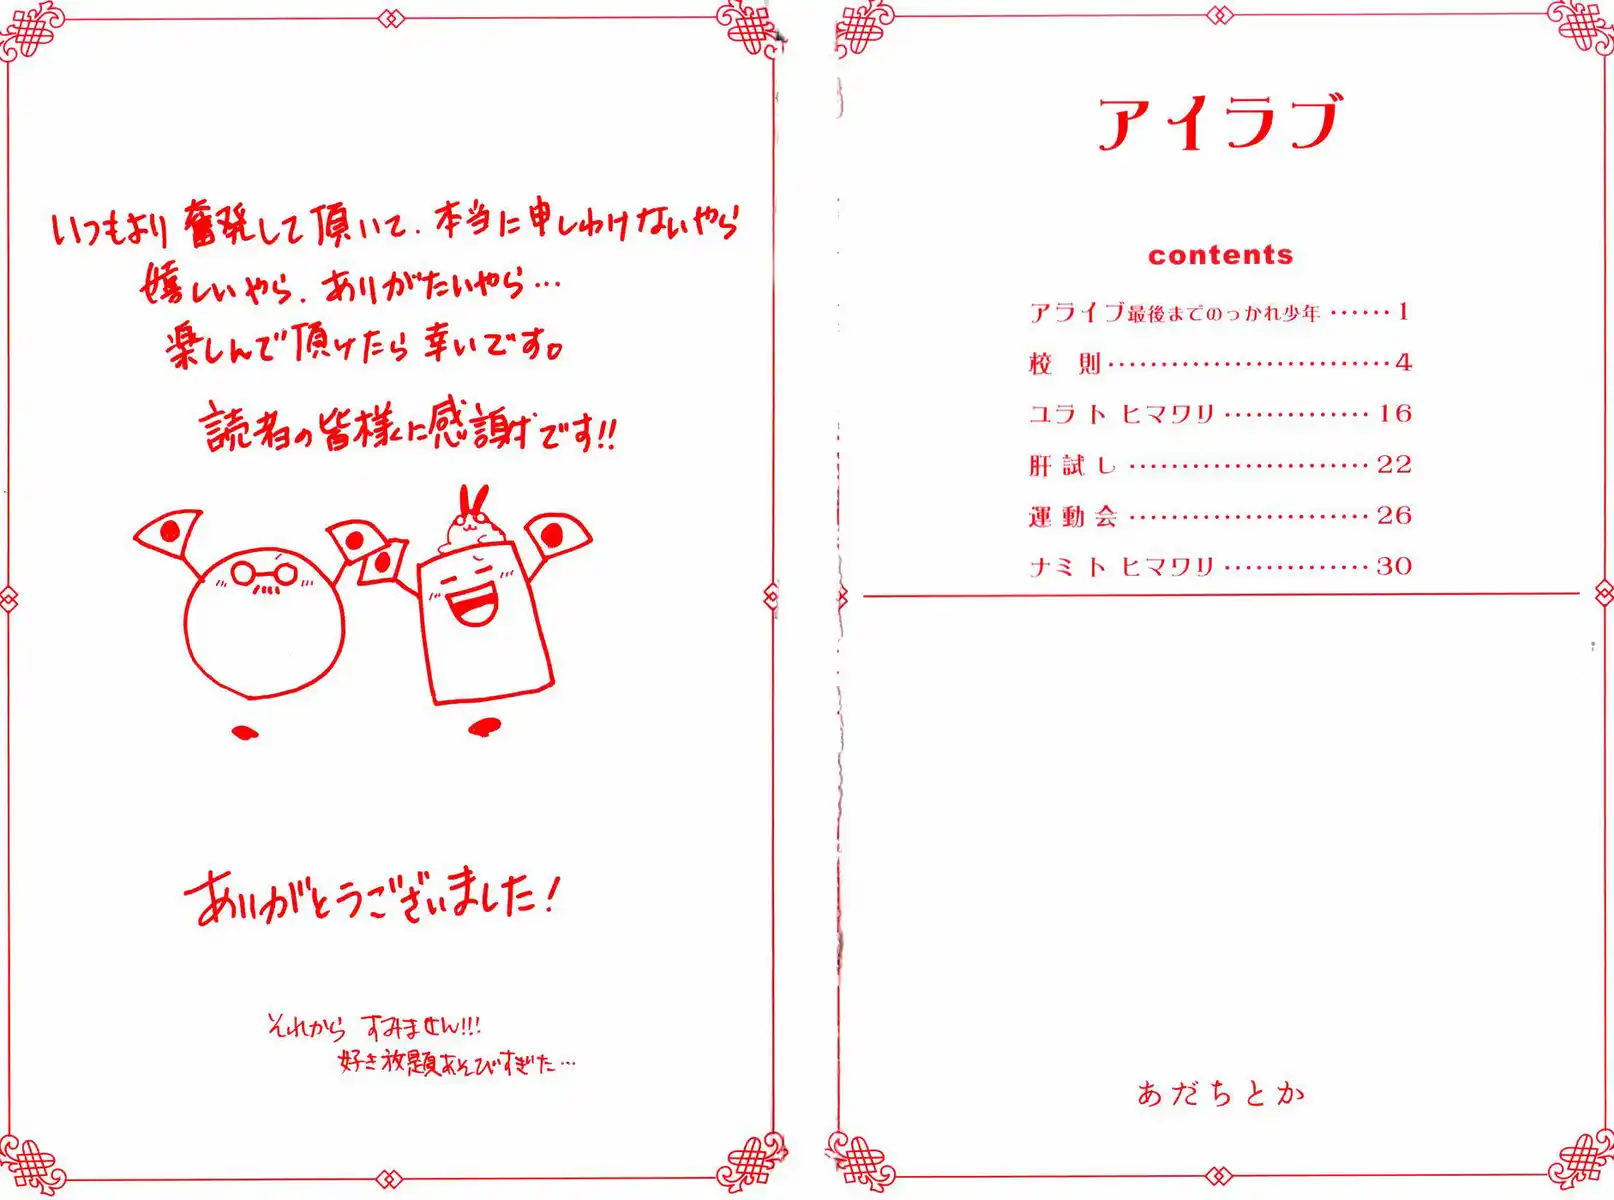 いつもより奮発して頂いて、本当に申しわけないやら
嬉しいやら、ありがたいやら…
楽しんで頂けたら幸いです。
読者の皆様に感謝です!!
ありがとうございました!
それから すみません!!!
好き放題あそびすぎた…
アイラブ
contents
アライブ最後までのっかれ少年……1
校 則…………………………4
ユラト ヒマワリ……………16
肝試し………………………22
運動会………………………26
ナミト ヒマワリ……………30
あだちとか